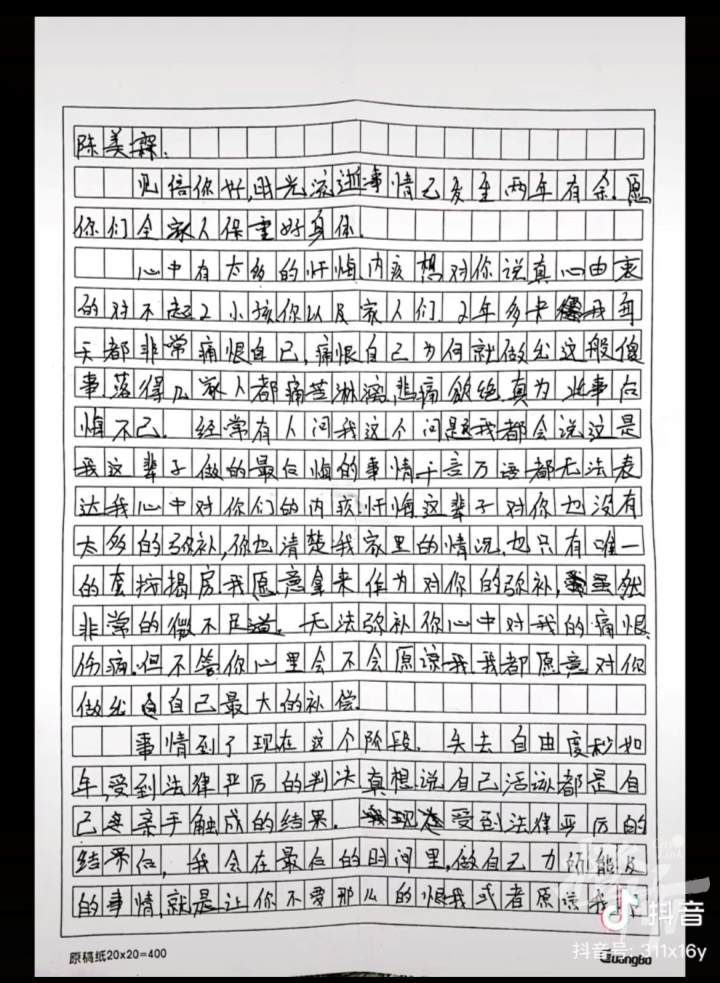 陈美霖.
见信你好,时光流逝事情已发生两年有余.愿
你们全家人保重好身体.
心中有太多的忏悔.内疚想对你说真心由衷
的对不起2小孩你以及家人们.2年多来我每
天都非常痛恨自己,痛恨自己为何就做出这般傻
事落得几家人都痛苦淋漓,悲痛欲绝真为此事后
悔不己.经常有人问我这个问题我都会说这是
我这辈子做的最后悔的事情千言万语都无法表
达我心中对你们的内疚忏悔这辈子对你也没有
太多的弥补,你也清楚我家里的情况.也只有唯一
的套按揭房.我愿意拿来作为对你的弥补,虽然
非常的微不足道.无法弥补你心中对我的痛恨.
伤痛.但不管你心里会不会原谅我.我都愿意对你
做出自己最大的补偿.
事情到了现在这个阶段.失去自由度秒如
年,受到法律严厉的判决真想说自己活该都是自
己亲手触成的结果.现在受到法律严厉的
结果后,我会在最后的时间里,做自己力所能及
的事情,就是让你不爱那么的恨我或者原谅我
原稿纸20x20=400
Guangbo
抖音
抖音号: 311x16y